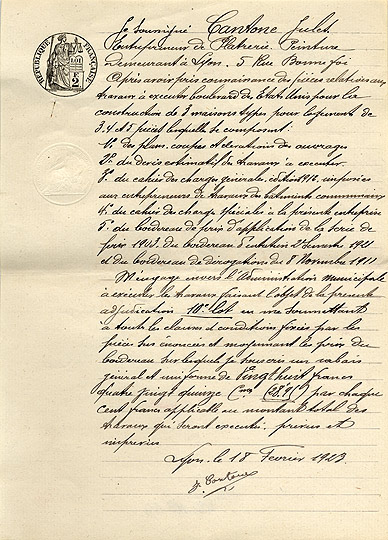 RÉPUBLIQUE FRANÇAISE
2
Je soussigné Cantone Jules
Entrepreneur de Platrerie Peinture
demeurant à Lyon. 5 Rue Bonnefoi
Après avoir pris connaissance des pièces relatives aux
travaux à executer boulevard des Etats Unis pour la
construction de 3 maisons types pour logements de
3.4 et 5 pièces lesquelles se composent:
1° des plans, coupes et elevations des ouvrages
2° du devis estimatif des travaux a executer.
3° du cahier des charges générales, édition 1916, imposées
aux entrepreneurs de travaux de bâtiments communaux
4° du cahier des charges spéciales à la présente entreprise
5° du bordereau de prix d'application de la serie de
prix 1903. du bordereau d'entretien 2e Semestre 1921
et du bordereau de dérogations du 8 Novembre 1911
M'engage envers l'Administration municipale
à executer les travaux faisant l'objet de la presente
adjudication 10e lot en me soumettant
à toute les clauses et conditions fixées par les
pièces sus enoncées et moyennant les prix du
bordereau sur lesquels je souscris un rabais
général et uniforme de Vingt huit francs
quatre vingt quinze (28.95) par chaque
cent francs applicable au montant total des
travaux qui seront executés, prevus et
imprevus
Lyon. le 18 Fevrier 1923.
J. Cantone